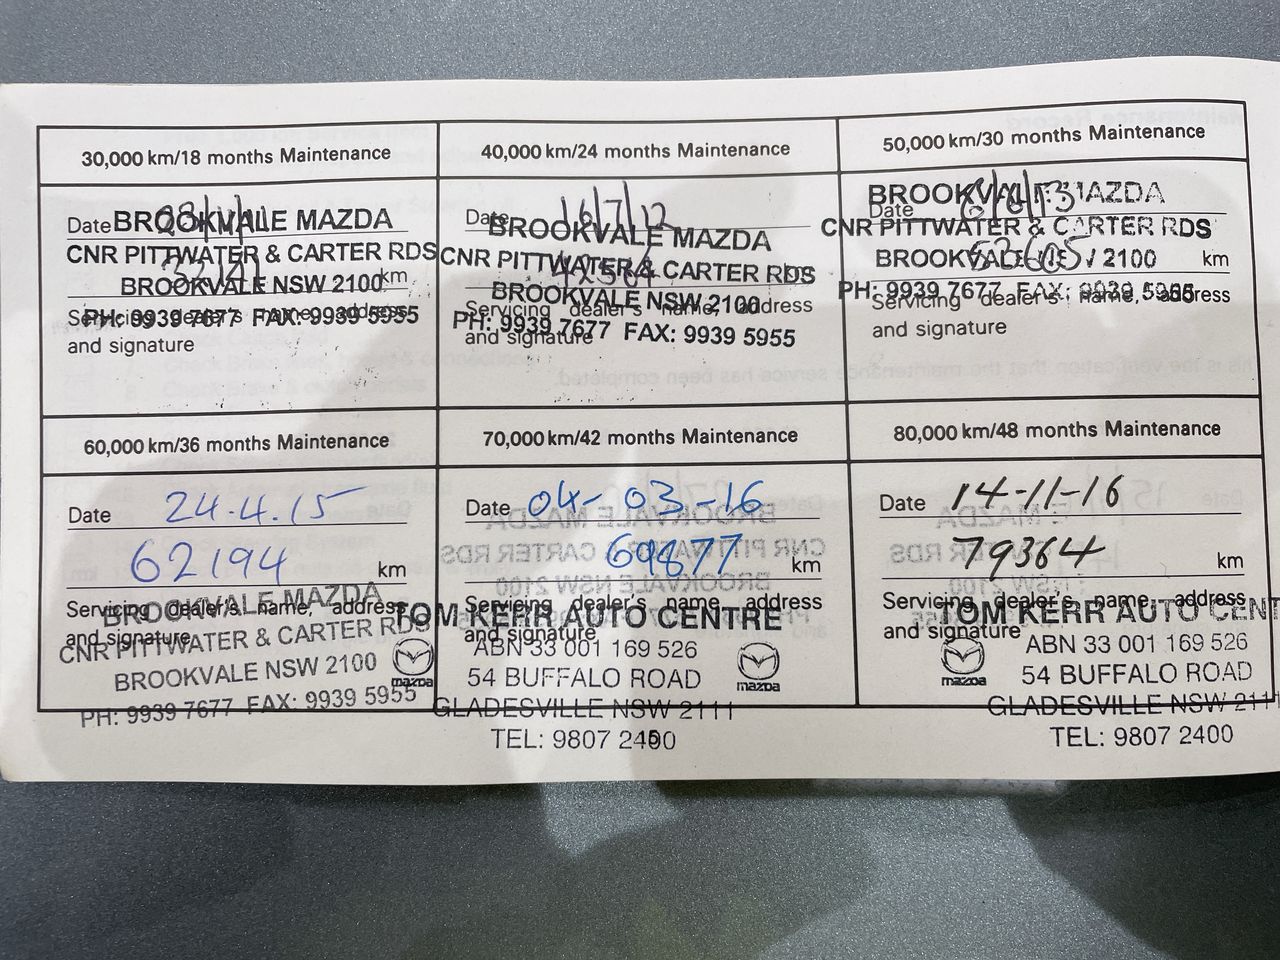 30,000 km/18 months Maintenance
Date
BROOKVALE MAZDA
CNR PITTWATER & CARTER RDS
BROOKVALE NSW 2100
km
PH: 9939 7677 FAX: 9939 5955
Servicing dealer's name, address
and signature
40,000 km/24 months Maintenance
Date 16/7/12
BROOKVALE MAZDA
CNR PITTWATER & CARTER RDS
km
BROOKVALE NSW 2100
Servicing dealer's name, address
PH: 9939 7677 FAX: 9939 5955
and signature
50,000 km/30 months Maintenance
BROOKVALE MAZDA
Date
CNR PITTWATER & CARTER RDS
BROOKVALE NSW 2100
52605 km
PH: 9939 7677 FAX: 9939 5955
Servicing dealer's name, address
and signature
60,000 km/36 months Maintenance
Date 24.4.15
62194 km
Servicing dealer's name, address
and signature
BROOKVALE MAZDA
CNR PITTWATER & CARTER RDS
BROOKVALE NSW 2100
PH: 9939 7677 FAX: 9939 5955
70,000 km/42 months Maintenance
Date 04-03-16
69877 km
Servicing dealer's name, address
and signature
TOM KERR AUTO CENTRE
ABN 33 001 169 526
mazda 54 BUFFALO ROAD mazda
GLADESVILLE NSW 2111
TEL: 9807 2400
80,000 km/48 months Maintenance
Date 14-11-16
79364 km
Servicing dealer's name, address
and signature
TOM KERR AUTO CENT
ABN 33 001 169 526
mazda 54 BUFFALO ROAD
GLADESVILLE NSW 2111
TEL: 9807 2400